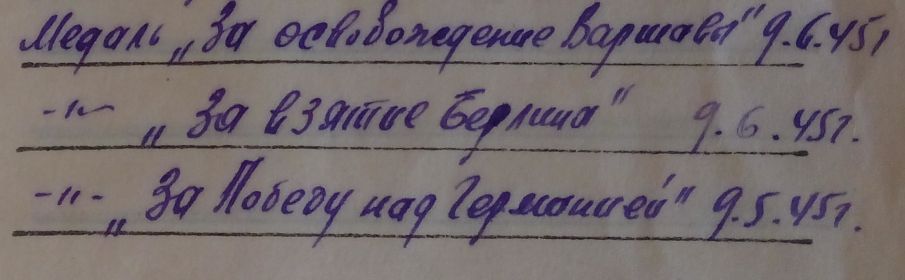 Медаль „За освобождение Варшавы" 9.6.45г
-"- „За взятие Берлина" 9.6.45г.
-"- „За Победу над Германией" 9.5.45г.